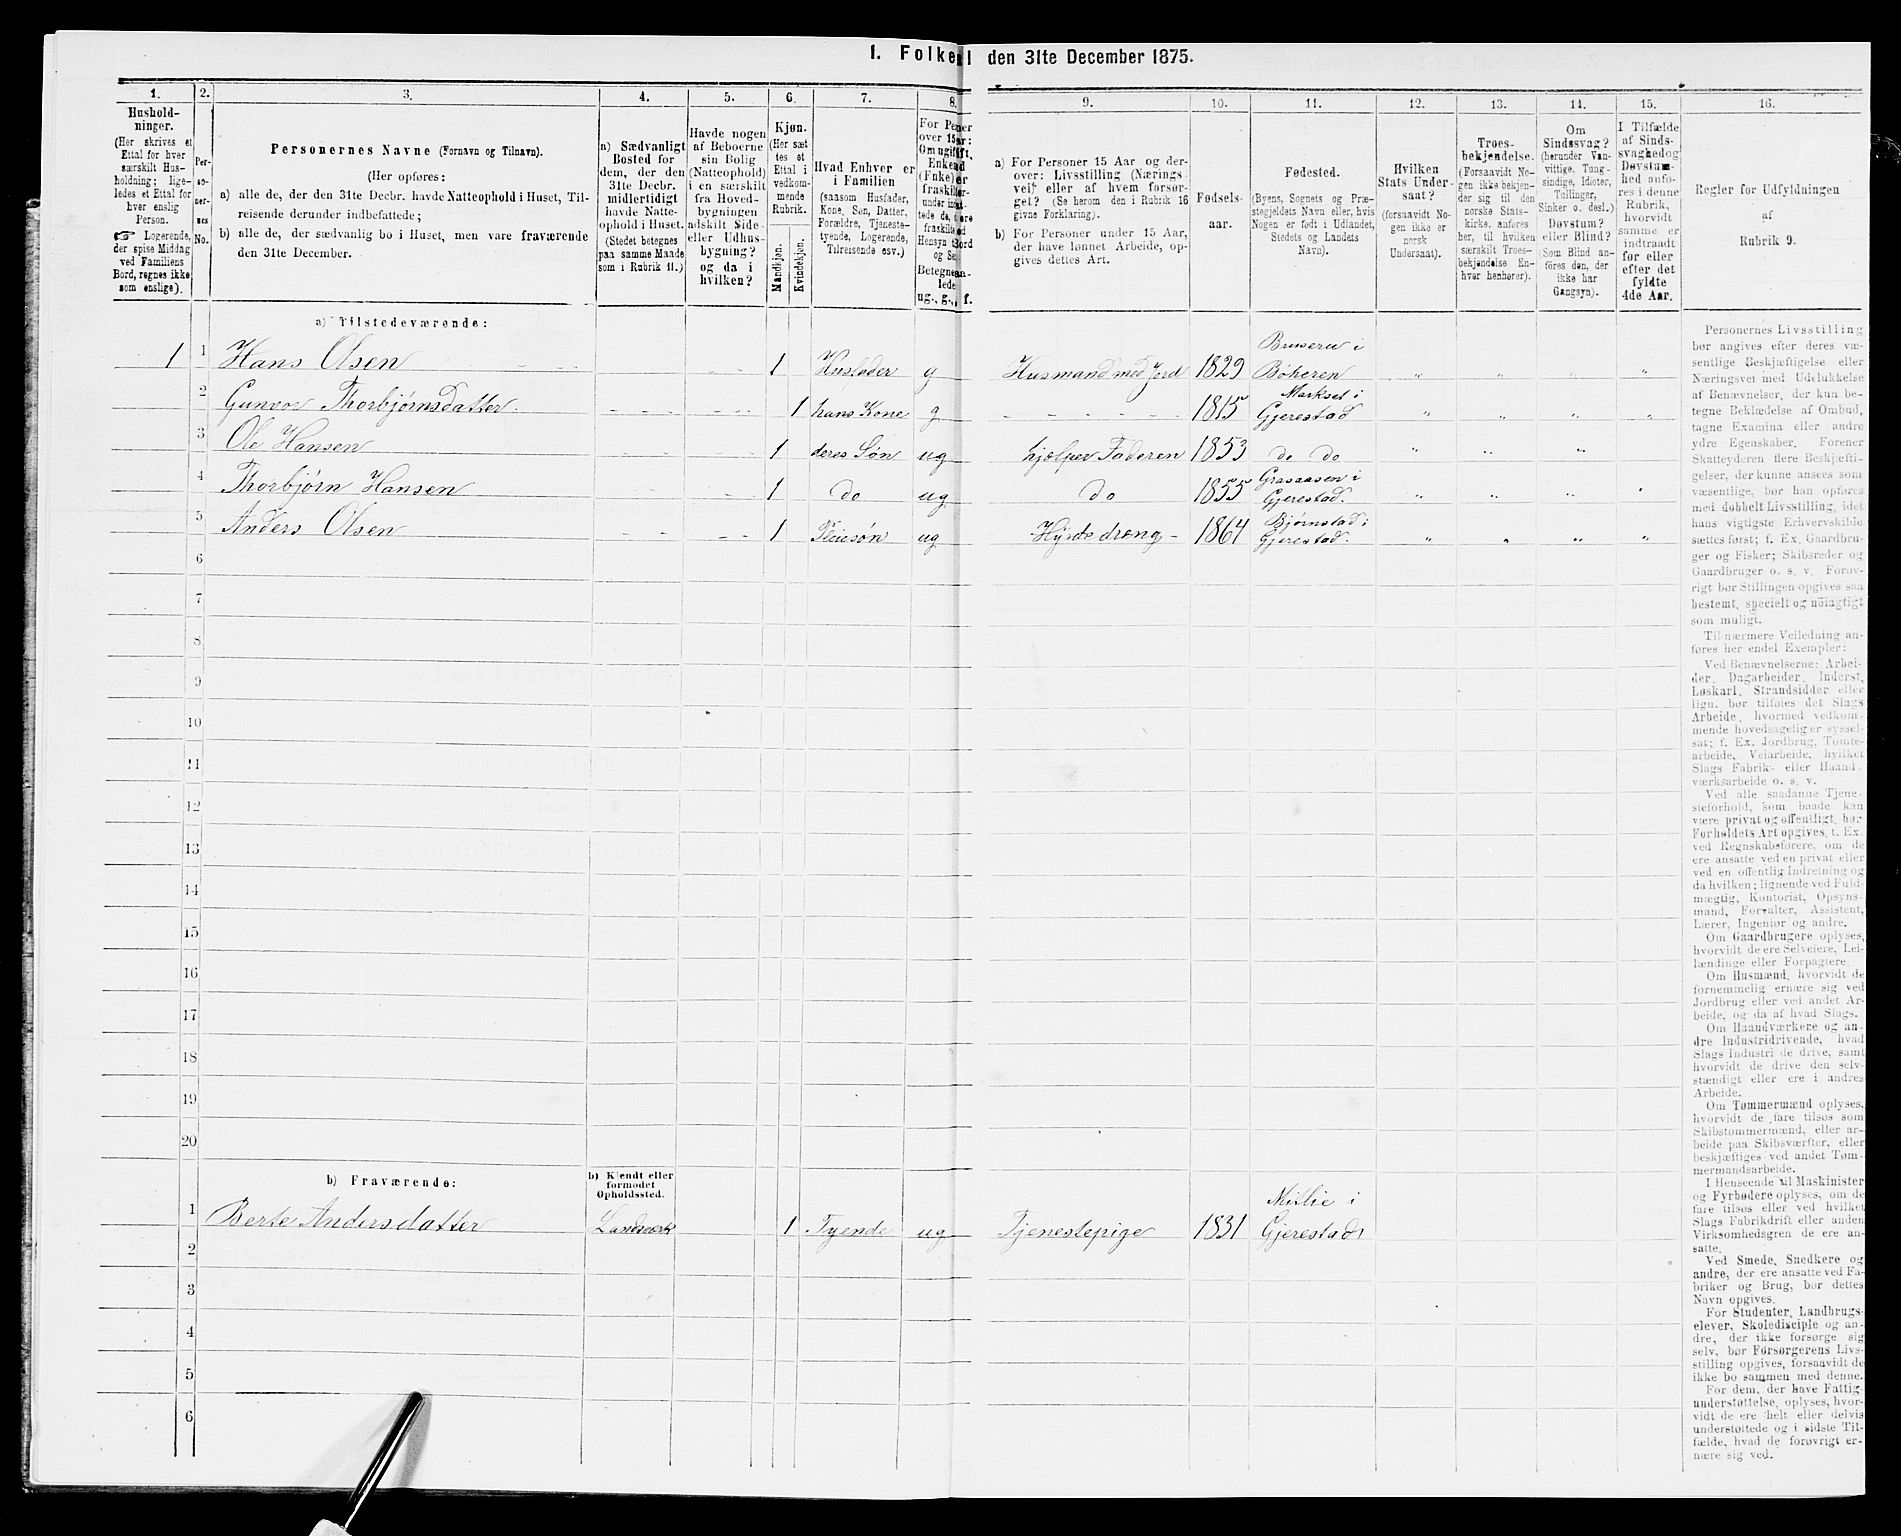 1. Folke l den 31te December 1875.
1. 2. 3. 4. 5. 6. 7. 8. 9. 10. 11. 12. 13. 14. 15. 16.
Hushold-
ninger.
(Her skrives et
Ettal for hver
særskilt Hus-
holdning; lige-
ledes et Ettal for
hver enslig
Person.
☞ Logerende,
der spise Middag
ved Familiens
Bord, regnes ikke
som enslige).
Per-
so-
ner-
nes
No.
Personernes Navne (Fornavn og Tilnavn).
(Her opføres:
a) alle de, der den 31te Decbr. havde Natteophold i Huset, Til-
reisende derunder indbefattede;
b) alle de, der sædvanlig bo i Huset, men vare fraværende
den 31te December.
a) Sædvanligt
Bosted for
dem, der den
31te Decbr.
midlertidigt
havde Natte-
ophold i Huset.
(Stedet betegnes
paa samme Maade
som i Rubrik 11.)
Havde nogen
af Beboerne
sin Bolig
(Natteophold)
i en særskilt
fra Hoved-
bygningen
adskilt Side-
eller Udhus-
bygning?
og da i
hvilken?
Kjøn.
(Her sæt
tes et
Ettal i
vedkom-
mende
Rubrik.
Mandkjøn.
Kvindekjøn.
Hvad Enhver er
i Familien
(saasom Husfader,
Kone, Søn, Datter,
Forældre, Tjeneste-
tyende, Logerende,
Tilreisende osv.).
over 15
Om ugift,
Enke
(Enke)
Betegne
lede
ug., g., f.
a) For Personer 15 Aar og der-
over: Livsstilling (Nærings-
vei) eller af hvem forsør-
get? (Se herom den i Rubrik 16
givne Forklaring).
b) For Personer under 15 Aar,
der have lønnet Arbeide, op-
gives dettes Art.
Fødsels-
aar.
Fødested.
(Byens, Sognets og Præ-
stegjeldets Navn eller, hvis
Nogen er født i Udlandet,
Stedets og Landets
Navn).
Hvilken
Stats Under-
saat?
(forsaavidt No-
gen ikke er
norsk
Undersaat).
Troes-
bekjendelse.
(Forsaavidt No-
gen ikke bekjen-
der sig til den
norske Stats-
kirke, anføres
her, til hvilken
særskilt Troes-
bekjendelse En-
hver henhører).
Om
Sindssvag?
(herunder Van-
vittige, Tung-
sindige, Idioter,
Tullinger,
Sinker o. desl.)
Døvstum?
eller Blind?
(Som Blind an-
føres den, der
ikke har
Gangsyn).
I Tilfælde
af Sinds-
svaghed og
Døvstum-
hed anfø-
res i denne
Rubrik,
hvorvidt
samme er
indtraadt
før eller
efter det
fyldte
4de Aar.
Regler for Udfyldningen
af
Rubrik 9.
a) Tilstedeværende:
1 1 Hans Olsen 1 Husfader g Husmand med Jord 1829 i Bøheren " " " "
2 Gunvor Thorbjørnsdatter. 1 hans Kone g 1815 Markset i Gjerestad " " " "
3 Ole Hansen 1 deres Søn ug hjælper Faderen 1853 do do " " "
4 Thorbjørn Hansen 1 do ug do 1855 Grasaasen i Gjerestad. " " " "
5 Anders Olsen 1 Pleiesøn ug Hyrdedreng - 1864 Bjørnstad i Gjerestad. " " " "
6
7
8
9
10
11
12
13
14
15
16
17
18
19
20
b) Fraværende:
b) Kjendt eller
formodet
Opholdssted.
1 Berte Andersdatter 1 Tyende ug Tjenestepige 1831 i Gjerestad
2
3
4
5
6
Personernes Livsstilling
bør angives efter deres væ-
sentlige Beskjæftigelse eller
Næringsvei med Udelukkelse
af Benævnelser, der kun be-
tegne Beklædelse af Ombud,
tagne Examina eller andre
ydre Egenskaber. Forener
Skatteyderen flere Beskjæfti-
gelser, der kunne ansees som
væsentlige, bør han opføres
med dobbelt Livsstilling, idet
hans vigtigste Erhvervskilde
sættes først; f. Ex. Gaardbru-
ger og Fisker; Skibsreder og
Gaardbruger o. s. v. Forøv-
rigt bør Stillingen opgives saa
bestemt, specielt og nøiagtigt
som muligt.
Til nærmere Veiledning an-
føres her endel Exempler:
Ved Benævnelserne: Arbei-
der, Dagarbeider, Inderst,
Løskarl, Strandsidder eller
lign. bør tilføies det Slags
Arbeide, hvormed vedkom-
mende hovedsagelig er syssel-
sat; f. Ex. Jordbrug, Tomte-
arbeide, Veiarbeide, hvilket
Slags Fabrik- eller Haand
værksarbeide o. s. v.
Ved alle saadanne Tjene-
steforhold, som baade kan
være privat og offentligt, bør
Forholdets Art opgives, f. Ex.
ved Regnskabsførere, om de
ere ansatte ved en privat eller
ved en offentlig Indretning og
da hvilken; lignende ved Fuld-
mægtig, Kontorist, Opsyns-
mand, Forvalter, Assistent,
Lærer, Ingeniør og andre.
Om Gaardbrugere oplyses,
hvorvidt de ere Selveiere, Lei-
lændinge eller Forpagtere.
Om Husmænd, hvorvidt de
fornemmelig ernære sig ved
Jordbrug eller ved andet Ar-
beide, og da af hvad Slags.
Om Haandværkere og an-
dre Industridrivende, hvad
Slags Industri de drive, samt
hvorvidt de drive den selv-
stændigt eller ere i andres
Arbeide.
Om Tømmermænd oplyses,
hvorvidt de fare tilsøs som
Skibstømmermænd, eller ar-
beide paa Skibsværfter, eller
beskjæftiges ved andet Tøm-
mermandsarbeide.
I Henseende til Maskinister
og Fyrbødere oplyses, om de
fare tilsøs eller ved hvilket
Slags Fabrikdrift eller anden
Virksomhedsgren de ere an-
satte.
Ved Smede, Snedkere og
andre, der ere ansatte ved Fa-
briker og Brug, bør dettes
Navn opgives.
For Studenter, Landbrugs-
elever, Skoledisciple og an-
dre, der ikke forsørge sig
selv, bør Forsørgerens Livs-
stilling opgives, forsaavidt de
ikke bo sammen med denne.
For dem, der have Fattig-
understøttelse, oplyses, hvor-
vidt de ere helt eller delvis
understøttede og i sidste Til-
fælde, hvad de forøvrigt er-
nære sig ved.